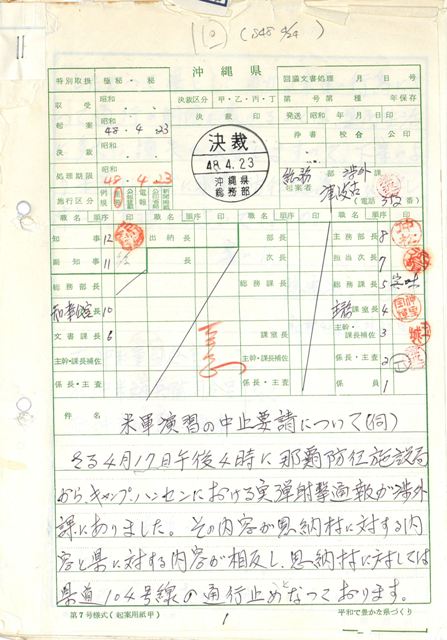 (S48 4/24)
沖縄県
特別取扱 極秘・秘
回議文書処理 月 日 号
収受 昭和 ・ ・
決裁区分 甲・乙・丙・丁
第 号 第 種 年保存
起案 昭和 48・4・23
発送 昭和 年 月 日
決裁 ・ ・
浄書 校合 公印
処理期限 48・4・23
施行区分
決裁
48.4.23
沖縄県
総務部
総務 部 渉外 課
起案者
(電話 番)
職名 順序 印 職名 順序 印 職名 順序 印 職名 順序 印
知事 12 出納長 部長 主務部長 8
副知事 11 次長 担当次長 7
総務部長 課長 総務課長 5
10 課室長 4
文書課長 6 課長 主幹・課長補佐 3
主幹・課長補佐 主幹・課長補佐 係長・主査 2
係長・主査 係長・主査 係員 1
件名 米軍演習の中止要請について(伺)
さる4月17日午後4時に那覇防衛施設局
から、キャンプ・ハンセンにおける実弾射撃通報が渉外
課にありました。その内容が恩納村に対する内
容と県に対する内容が相反し、恩納村に対しては
県道104号線の通行止めとなっております。
第7号様式(起案用紙甲) 1 平和で豊かな県づくり